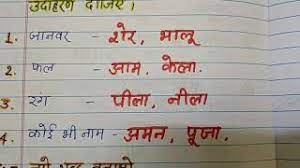 उदाहरण दीजिए।
1. जानवर - शेर, भालू
2. फल - आम, केला.
3. रंग - पीला, नीला
4. कोई भी नाम - अमन, पूजा.